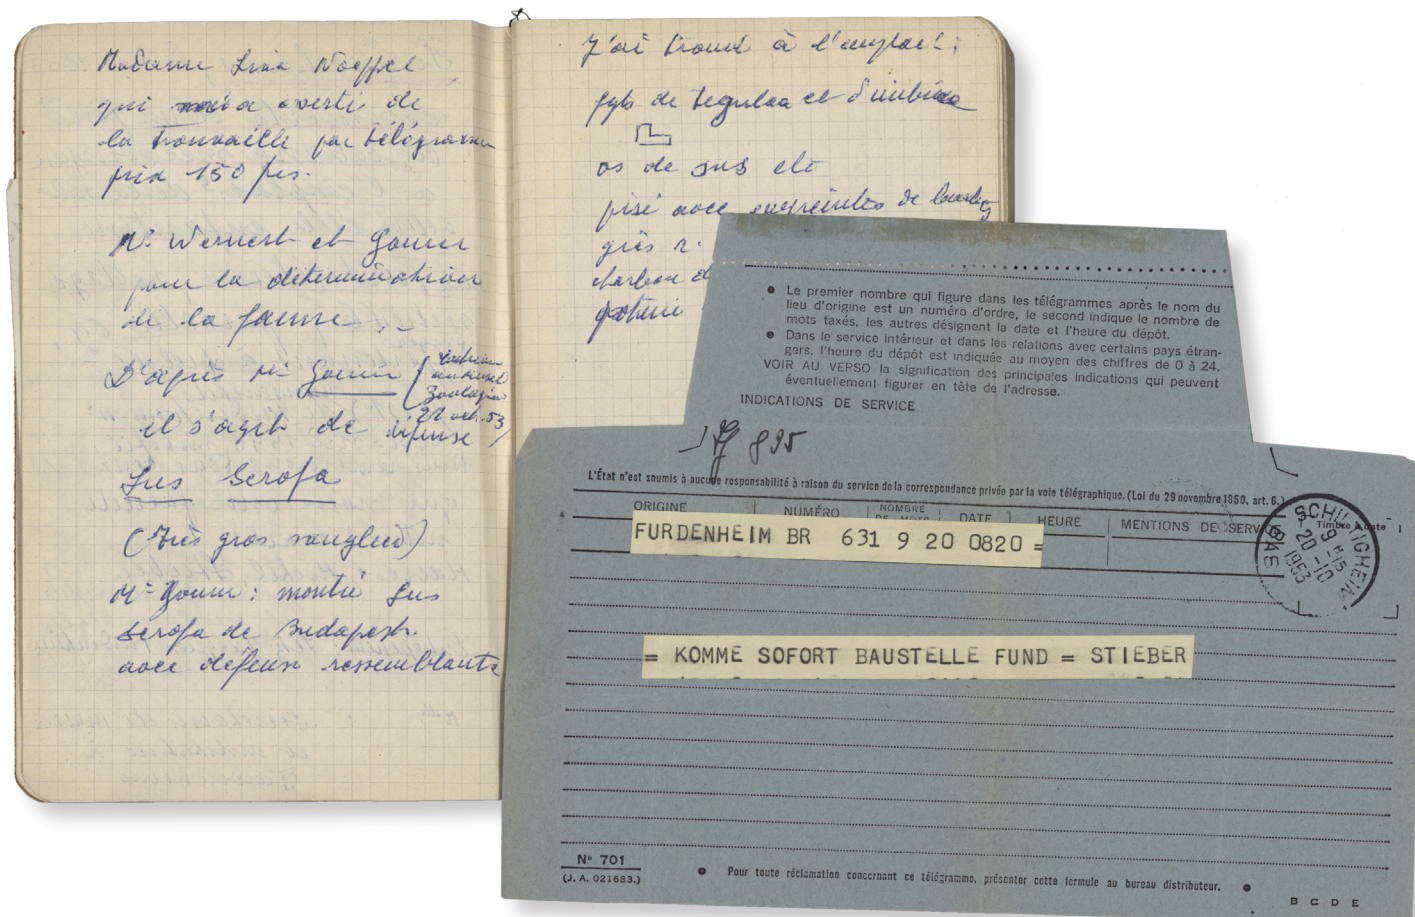 Madame Lina Noeppel
qui m'a averti de
la trouvaille par télégramme
prix 150 frs.
Mr. Wernert et Gouin
pour la détermination
de la faune
D'après Mr Gouin
Zoologie
22 oct. 53
il s'agit de
Sus Scrofa
(très gros sanglier)
Mr Gouin : montré Sus
Scrofa de Budapest
avec défenses ressemblantes
J'ai trouvé à l'empl
fgts de tegulae et d'imbrices
os de sus etc
pisé avec empreintes de
grès r.
charbon d
poterie
Le premier nombre qui figure dans les télégrammes après le nom du
lieu d'origine est un numéro d'ordre, le second indique le nombre de
mots taxés, les autres désignent la date et l'heure du dépôt.
Dans le service intérieur et dans les relations avec certains pays étran-
gers, l'heure du dépôt est indiquée au moyen des chiffres de 0 à 24.
VOIR AU VERSO la signification des principales indications qui peuvent
éventuellement figurer en tête de l'adresse.
INDICATIONS DE SERVICE
L'État n'est soumis à aucune responsabilité à raison du service de la correspondance privée par la voie télégraphique. (Loi du 29 novembre 1850, art. 6.)
ORIGINE NUMÉRO NOMBRE DE MOTS DATE HEURE MENTIONS DE SERVICE Timbre à date
FURDENHEIM BR 631 9 20 0820 =
SCHILTIGHEIM
9 H 15
20 -10
1953
BAS
= KOMME SOFORT BAUSTELLE FUND = STIEBER
N° 701
(J. A. 021683.)
Pour toute réclamation concernant ce télégramme, présenter cette formule au bureau distributeur.
B C D E